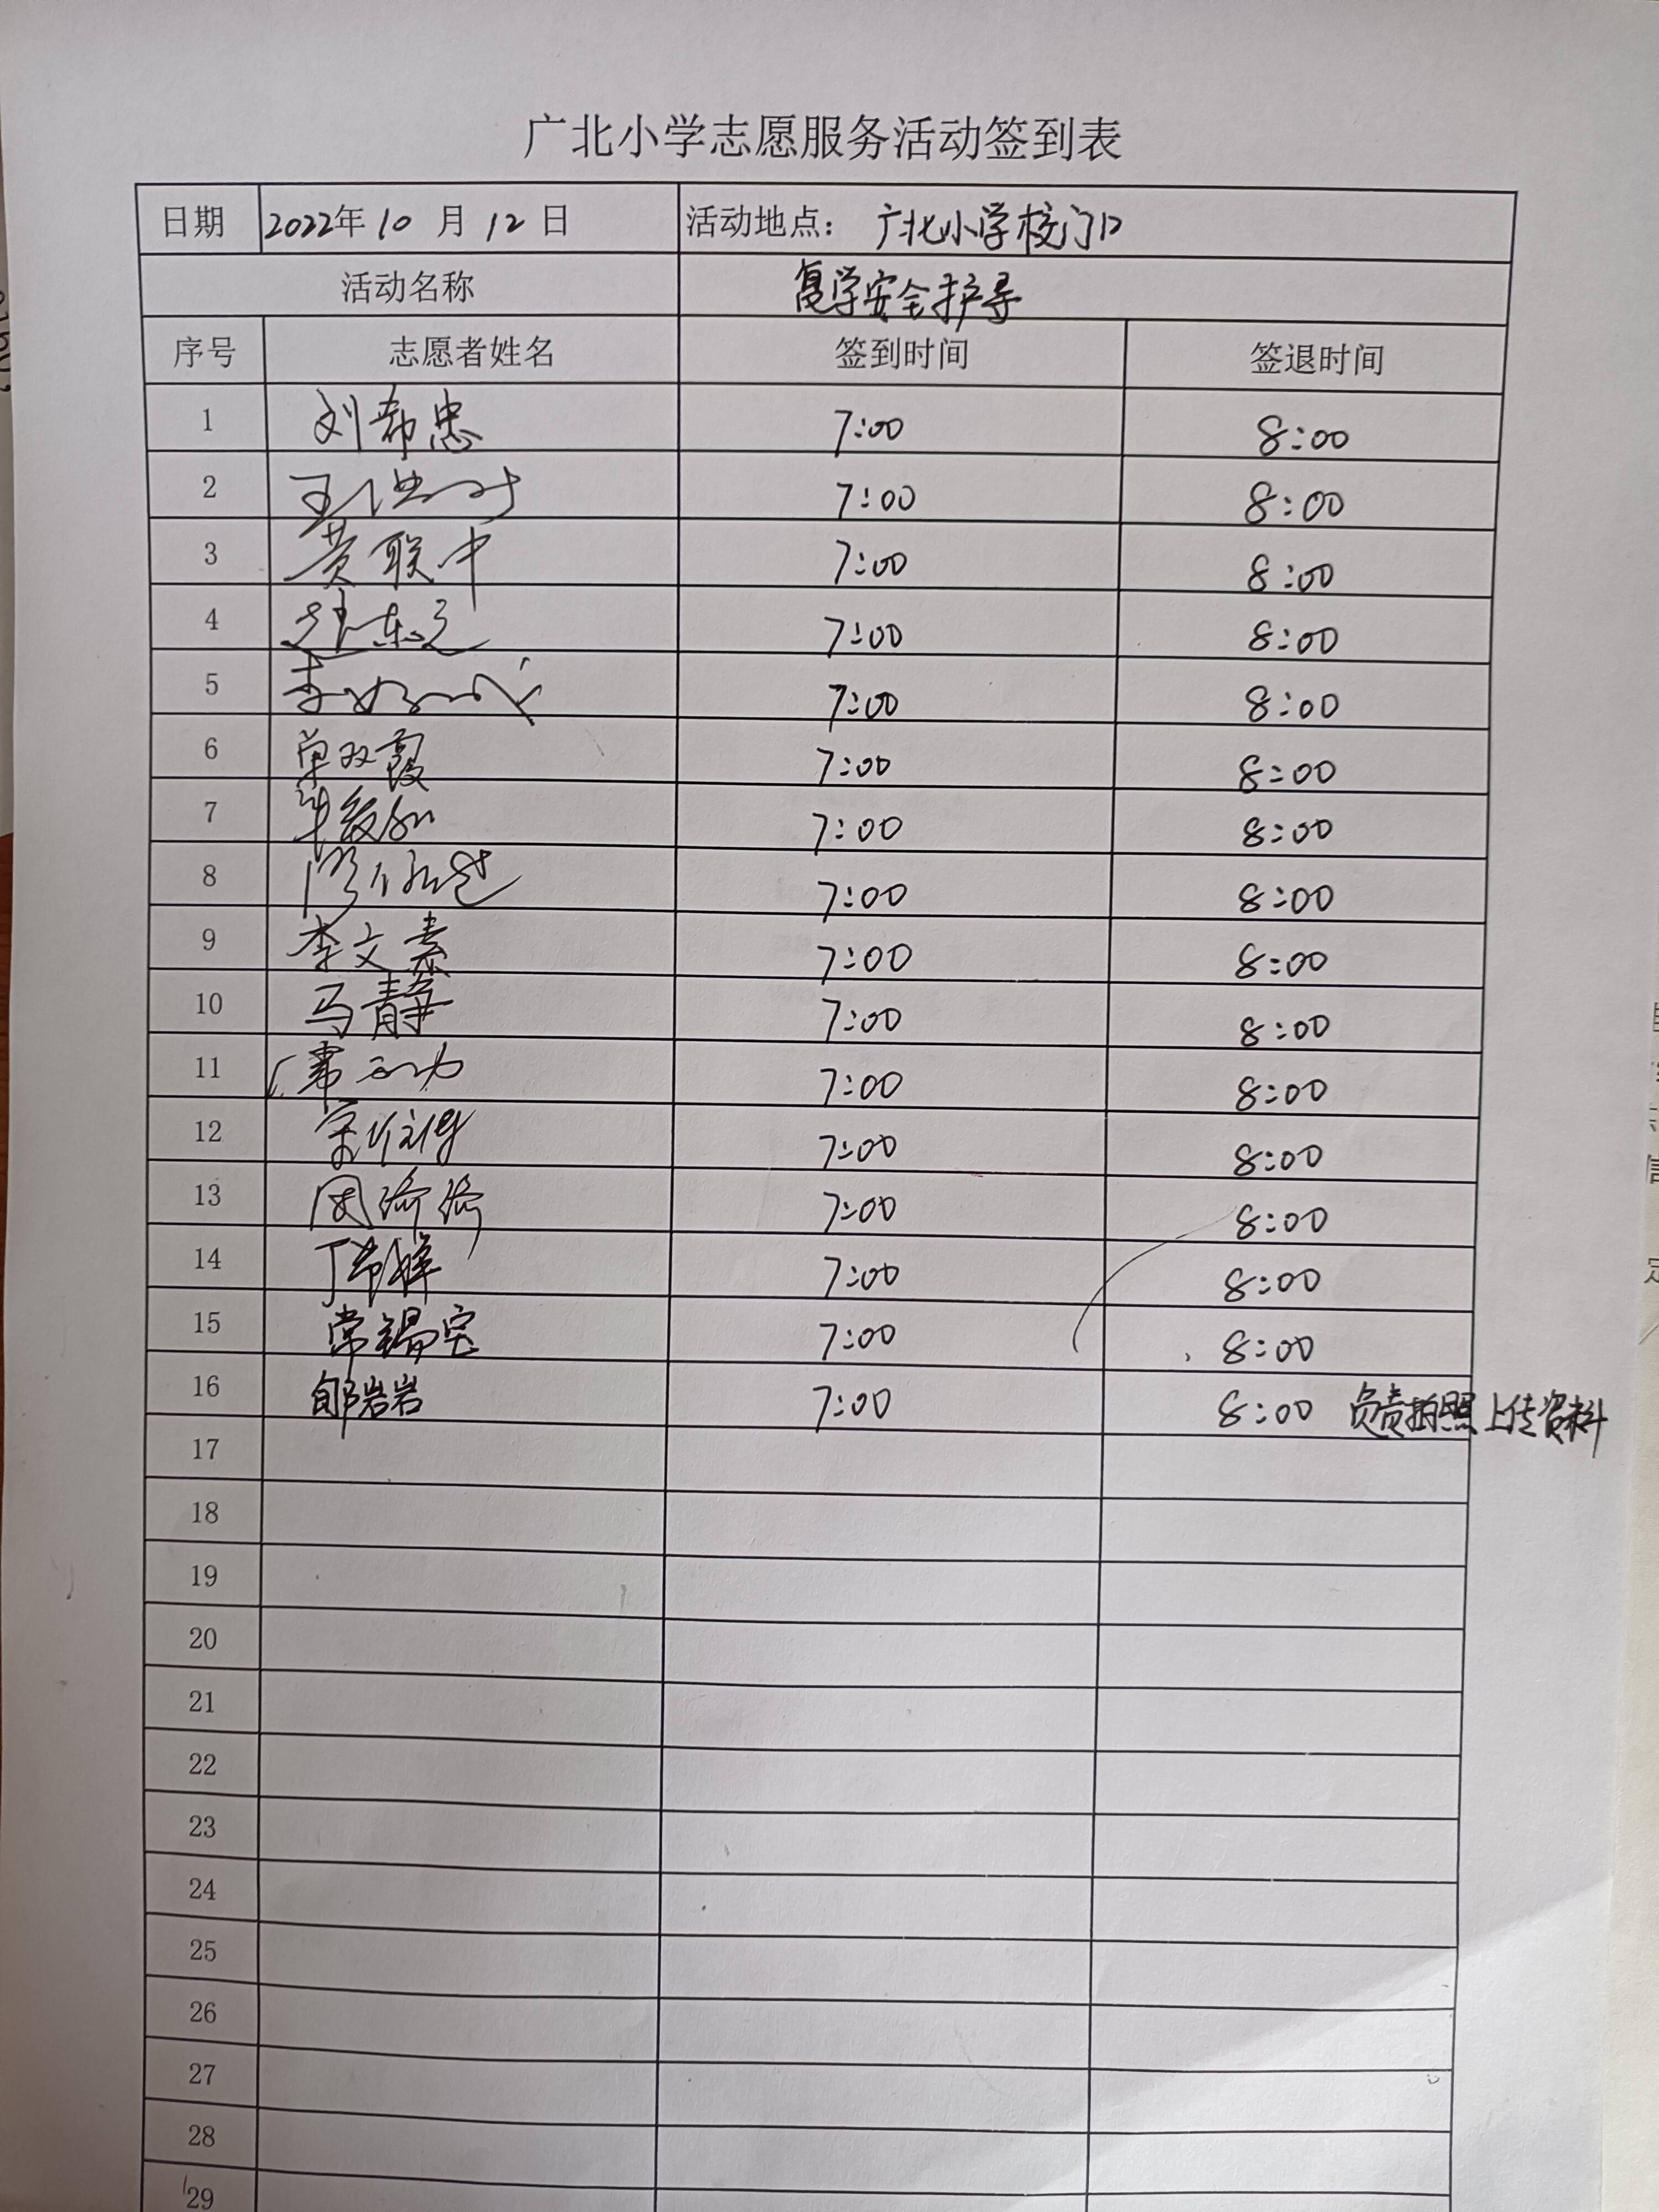 广北小学志愿服务活动签到表
日期 2022年10月12日 活动地点：广北小学校门口
活动名称 复学安全护导
序号 志愿者姓名 签到时间 签退时间
1 刘希忠 7:00 8:00
2 7:00 8:00
3 黄联中 7:00 8:00
4 7:00 8:00
5 7:00 8:00
6 单双霞 7:00 8:00
7 7:00 8:00
8 7:00 8:00
9 李文素 7:00 8:00
10 马静 7:00 8:00
11 7:00 8:00
12 7:00 8:00
13 7:00 8:00
14 7:00 8:00
15 常锡宝 7:00 8:00
16 郇岩岩 7:00 8:00 负责拍照上传资料
17
18
19
20
21
22
23
24
25
26
27
28
29